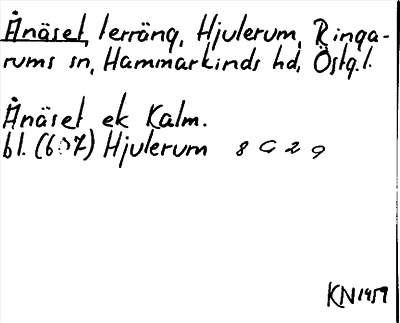 Ånäset, terräng, Hjulerum, Ringa-
rums sn, Hammarkinds hd, Östg.l.
Ånäset ek Kalm.
bl. (607) Hjulerum 8G 2g
KN 1959